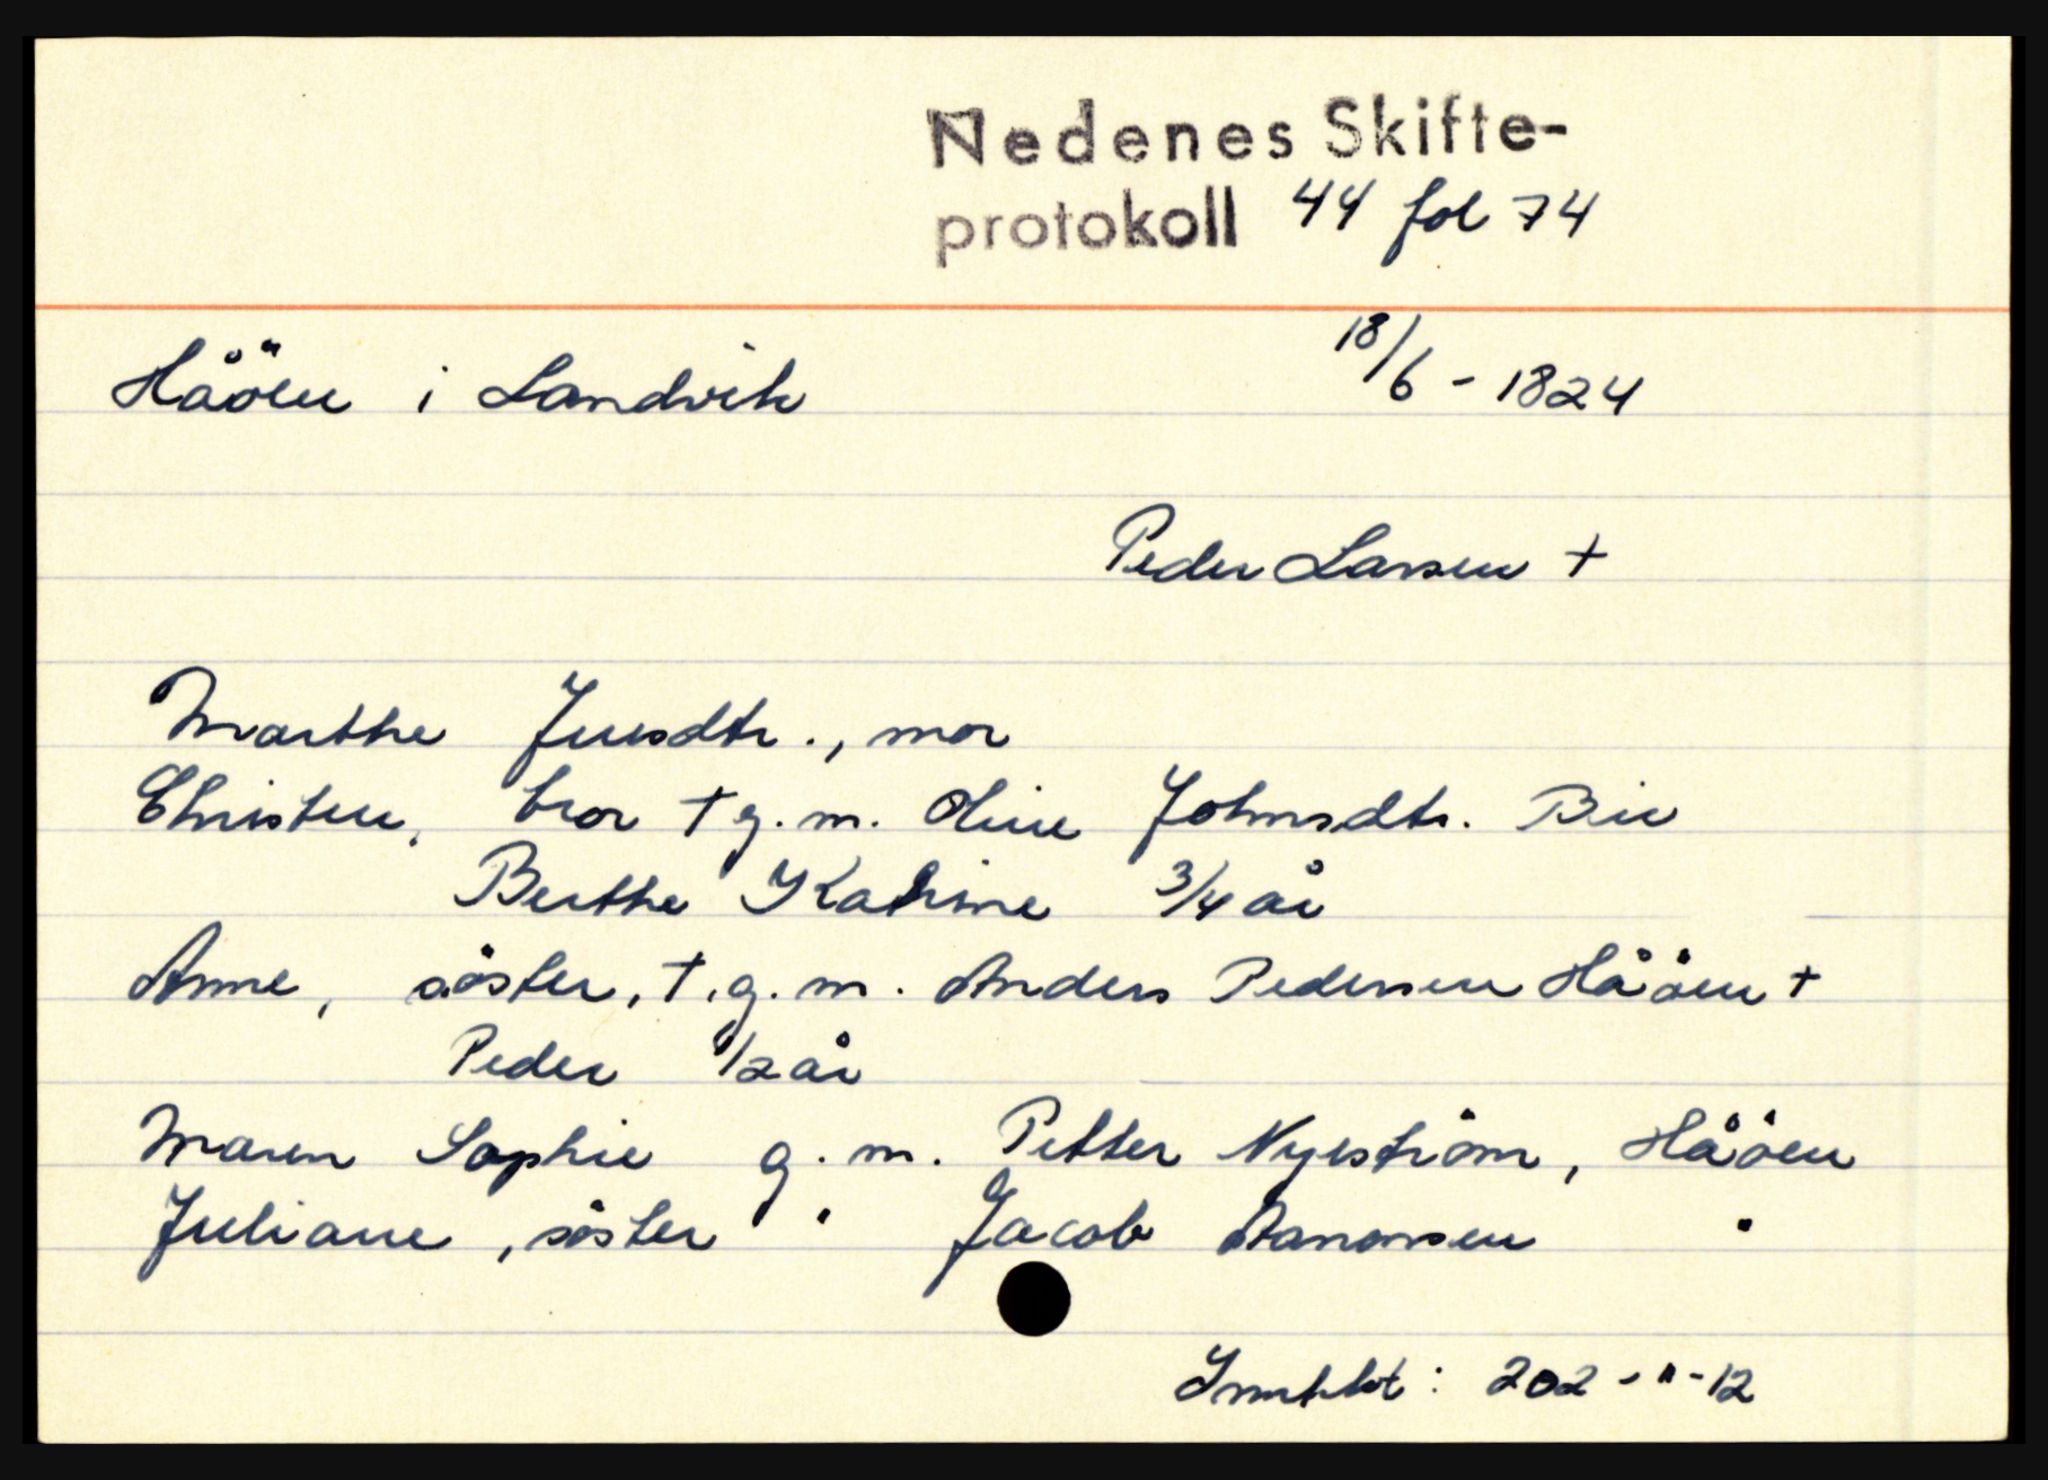 Nedenes Skifte-
protokoll 44 fol 74
Hååen i Landvik 18/6 - 1824
Peder Larsen +
Marthe Juusdtr., mor
Christen, bror + g.m. Oline Johnsdtr. Bie
Berthe Katrine 3/4 år
Anne, søster, +, g.m. Anders Pedersen Hååen +
Peder 1/2 år
Maren Sophie g.m. Petter Nyestrøm, Hååen
Juliane, søster " Jacob Aanonsen "
Inntekt: 202 - " - 12